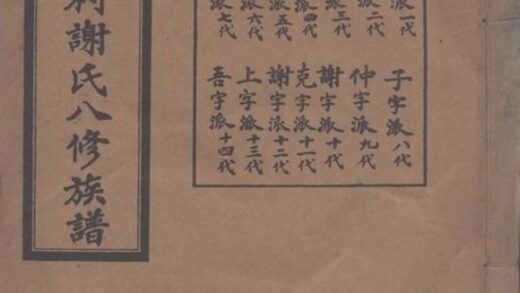 派一代
派二代
派三代
派四代
派五代
派六代
派七代
子字派八代
仲字派九代
謝字派十代
克字派十一代
謝字派十二代
上字派十三代
吾字派十四代
謝氏八修族譜